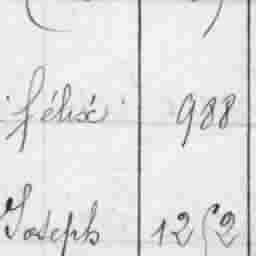 félix 988
Joseph 1252